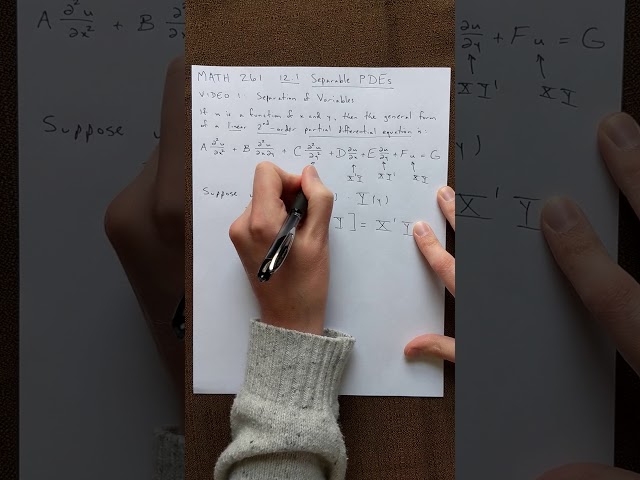 MATH 261 12.1 Separable PDEs
VIDEO 1: Separation of Variables
If u is a function of x and y, then the general form
of a linear 2nd-order partial differential equation is
A ∂²u/∂x² + B ∂²u/∂x∂y + C ∂²u/∂y² + D ∂u/∂x + E ∂u/∂y + F u = G
↑ ↑ ↑
X'Y XY' XY
Suppose Y(y)
Y] = X' Y